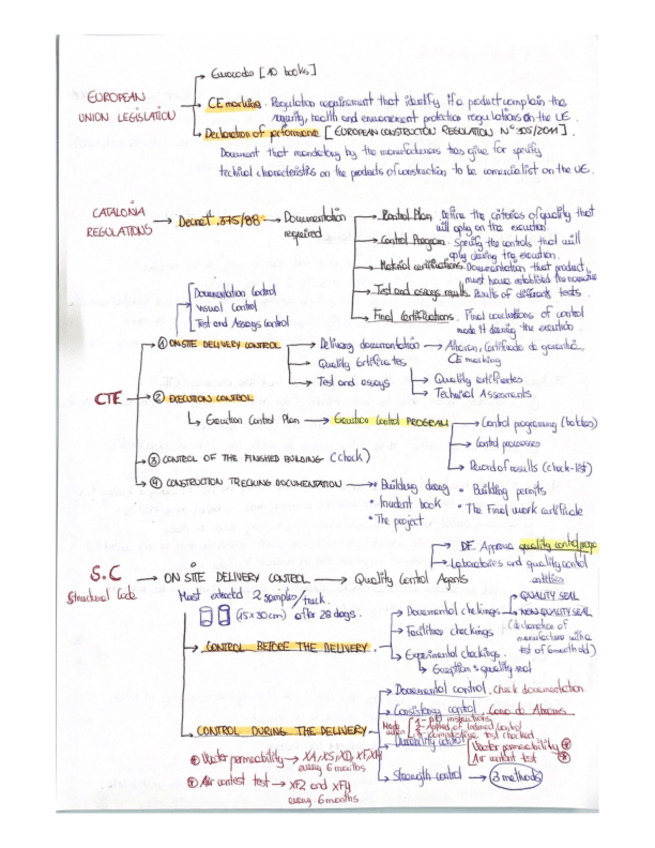 Eurocodes [10 books]
EUROPEAN UNION LEGISLATION
CE marking. Regulation requirement that identify if a product complain the
security, health and environement protection regulations on the UE.
Declaration of performance [EUROPEAN CONSTRUCTION REGULATION Nº 305/2011].
Document that mandatory by the manufacturers has give for specify
technical characteristics on the products of construction to be comercialist on the UE.
CATALONIA REGULATIONS
Decret 375/88
Documentation required
Control Plan. Define the criteries of quality that
will aply on the execution.
Control Program. Specify the controls that will
aply during the execution.
Material certifications. Documentation that product
must have established the
Test and assays results. Results of differents tests.
Final Certifications. Final conclusions of control
made it during the execution.
Documentation Control
Visual Control
Test and Assays Control
CTE
① ON SITE DELIVERY CONTROL
Delivery documentation → Albaran, Certificado de garantia,
CE marking
Quality Certificates
Test and assays
Quality certificates
Technical Assesments
② EXECUTION CONTROL
Execution Control Plan → Execution Control PROGRAM
Control programing
Control processes
Record of results (check-list)
③ CONTROL OF THE FINISHED BUILDING (check)
④ CONSTRUCTION TRECKING DOCUMENTATION
• Building • Building permits
• Incident book • The Final work certificate
• The project
S.C
Structural Code
ON SITE DELIVERY CONTROL → Quality Control Agents
DF. Approve quality control
Laboratories and quality control
entities
Must extracted 2 samples/truck.
(15x30cm) after 28 days.
CONTROL BEFORE THE DELIVERY
Documental chekings
QUALITY SEAL
NON QUALITY SEAL
(declaration of
manufacture with a
test of 6 month old)
Facilities checkings
Experimental checkings.
Exception = quality seal
CONTROL DURING THE DELIVERY
Documental control. Check documentation
Consistency control. Cono de Abrams
Durability control
Water permeability
Air content test
Strength control → 3 methods
Water permeability → XA, XS, XD, XF, XM
every 6 months
Air contest test → XF2 and XF4
every 6 months